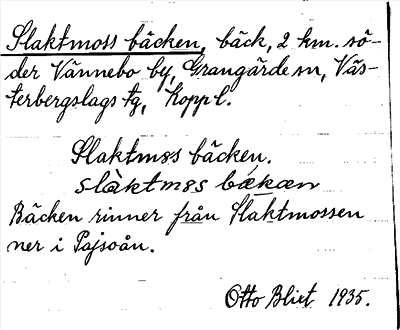 Slaktmoss bäcken, bäck, 2 km. sö-
der Vännebo by, Grangärde sn, Väs-
terbergslags tg, Koppl.
Slaktmøs bäcken,
slàktmøs bækæn
Bäcken rinner från Slaktmossen
ner i Pajsoån.
Otto Blixt 1935.